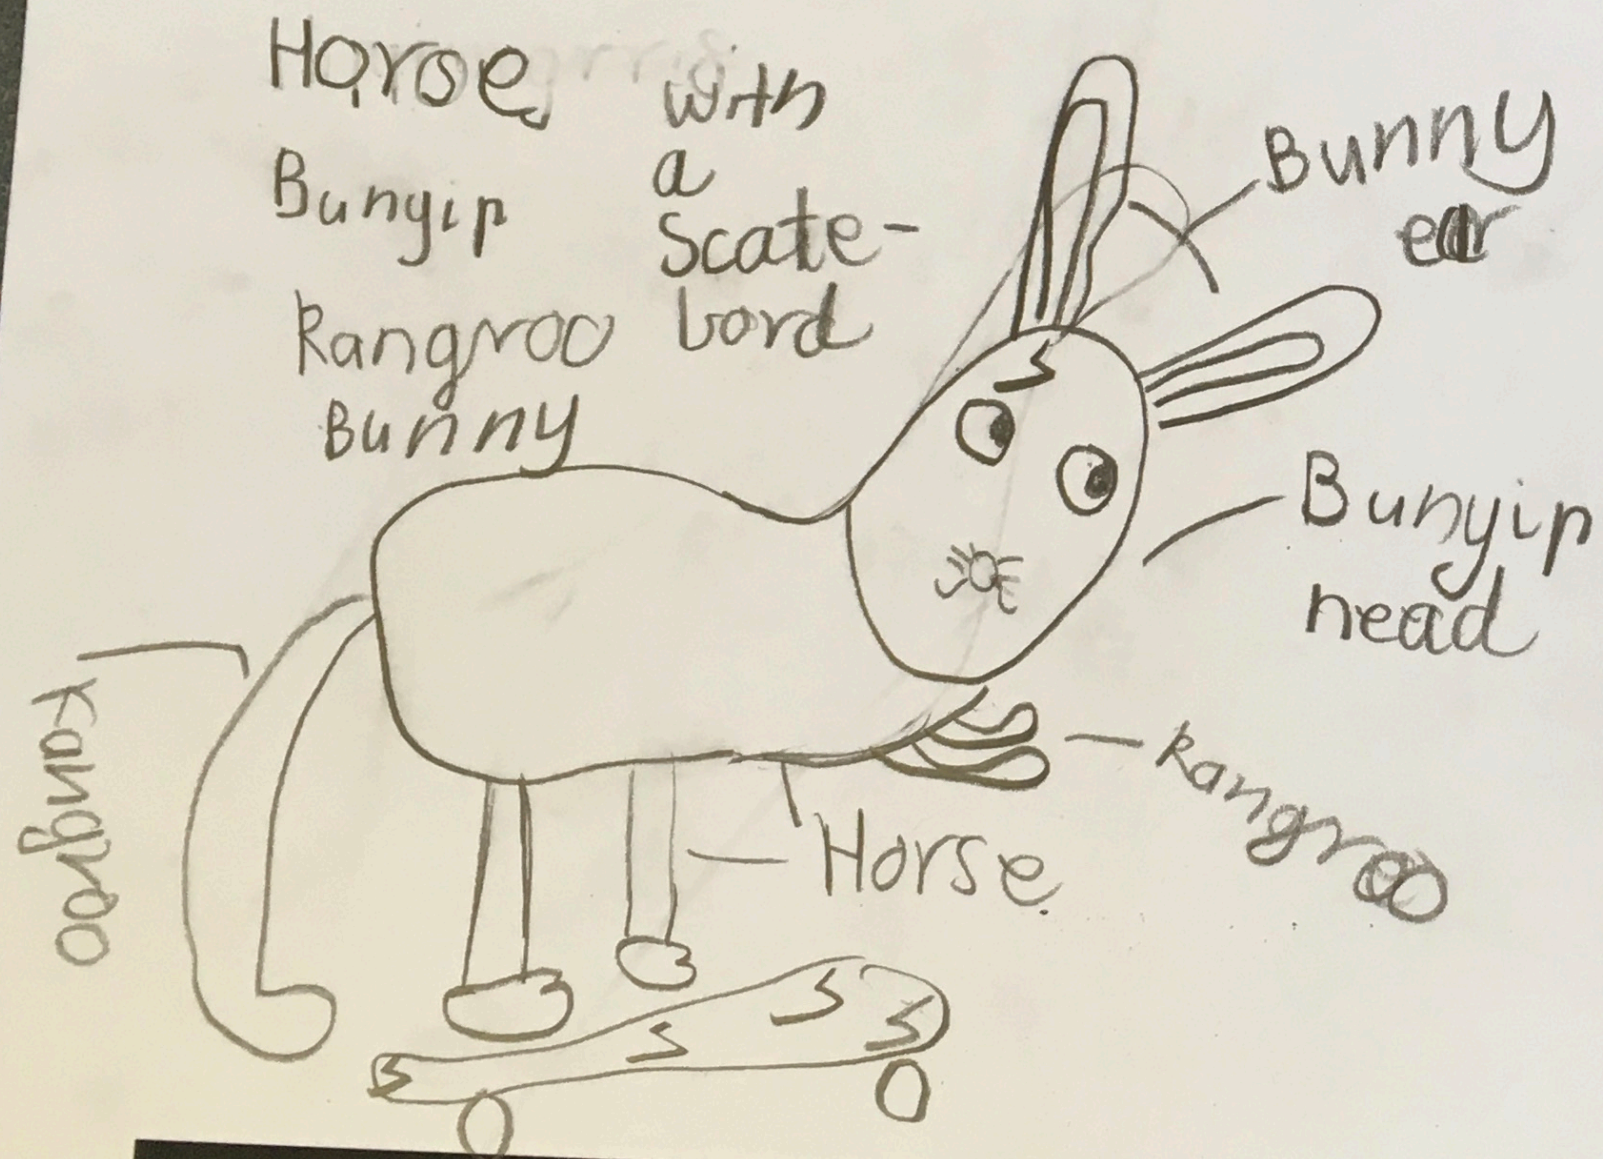 Horse
Bunyip
Kangroo
Bunny
with
a
Scate-
bord
Bunny
ear
Bunyip
head
Kangroo
Horse
Kangroo